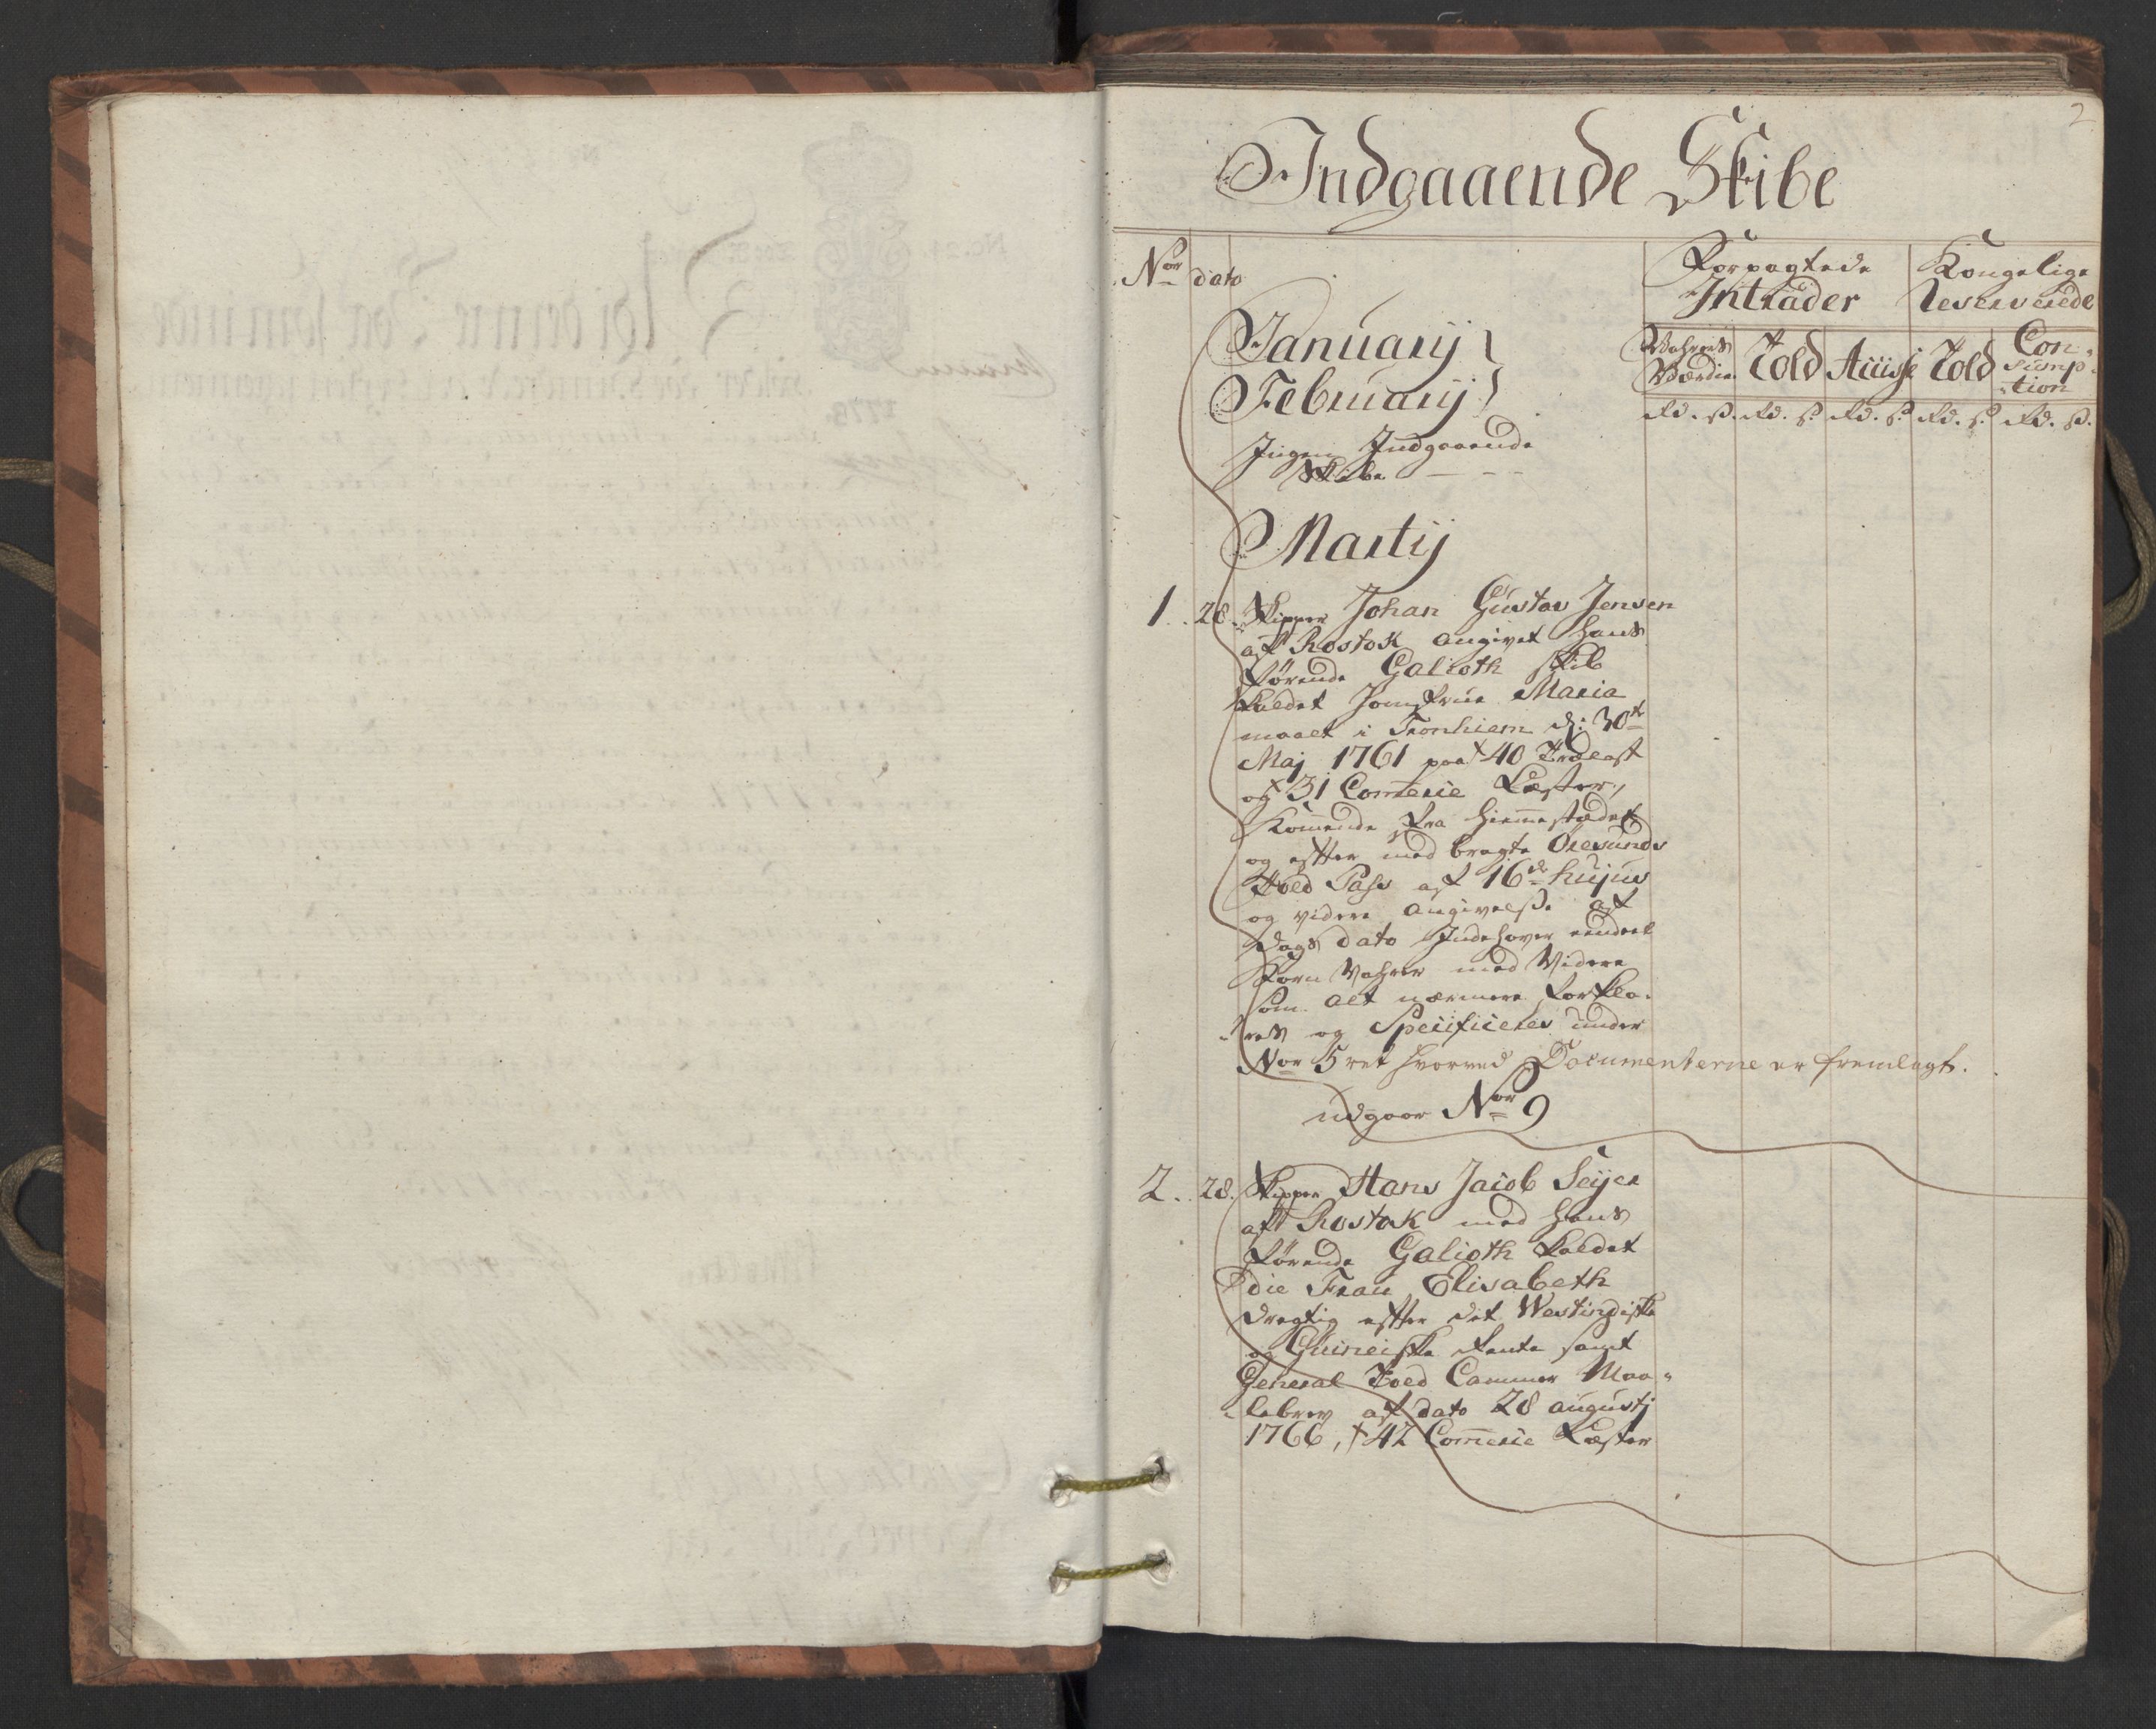 2
Indgaaende Skibe
Nor dato
Forpagtede Intrader
Kongelige Reserverede
Wahrens Værdie
Told
Accise
Told
Con-
sump-
tion
Rd. s. Rd. s. Rd. s. Rd. s. Rd. s.
Januarij
Februarij
Ingen Indgaaende
Skibe - - -
Martij
1. 28. Skipper Johan Gustav Jensen
af Rostok angivet hans
førende Galioth skib
kaldet Jomfrue Maria
maalt i Tronhiem d: 30te
Maj 1761 paa 40 Trælast
og 31 Comercie Læster,
Kommende fra hiemmestædet
og efter med bragte Øresunds
Told Pass af 16de hujus
og videre angivelse af
Dags dato Indehaver eendeel
Korn Vahrer med Videre
som alt nærmere forkla-
res og Specificeres under
Nor 5 ret hvorved Documenterne er fremlagt.
udgaar Nor 9
2. 28. Skipper Hans Jacob Seijer
af Rostok med hans
førende Galioth kaldet
die Frau Elisabeth
drægtig efter det Westindiske
og Guineiske Rente samt
General Told Cammer Maa-
lebrev af dato 28 augustj
1766, 42 Comercie Læster